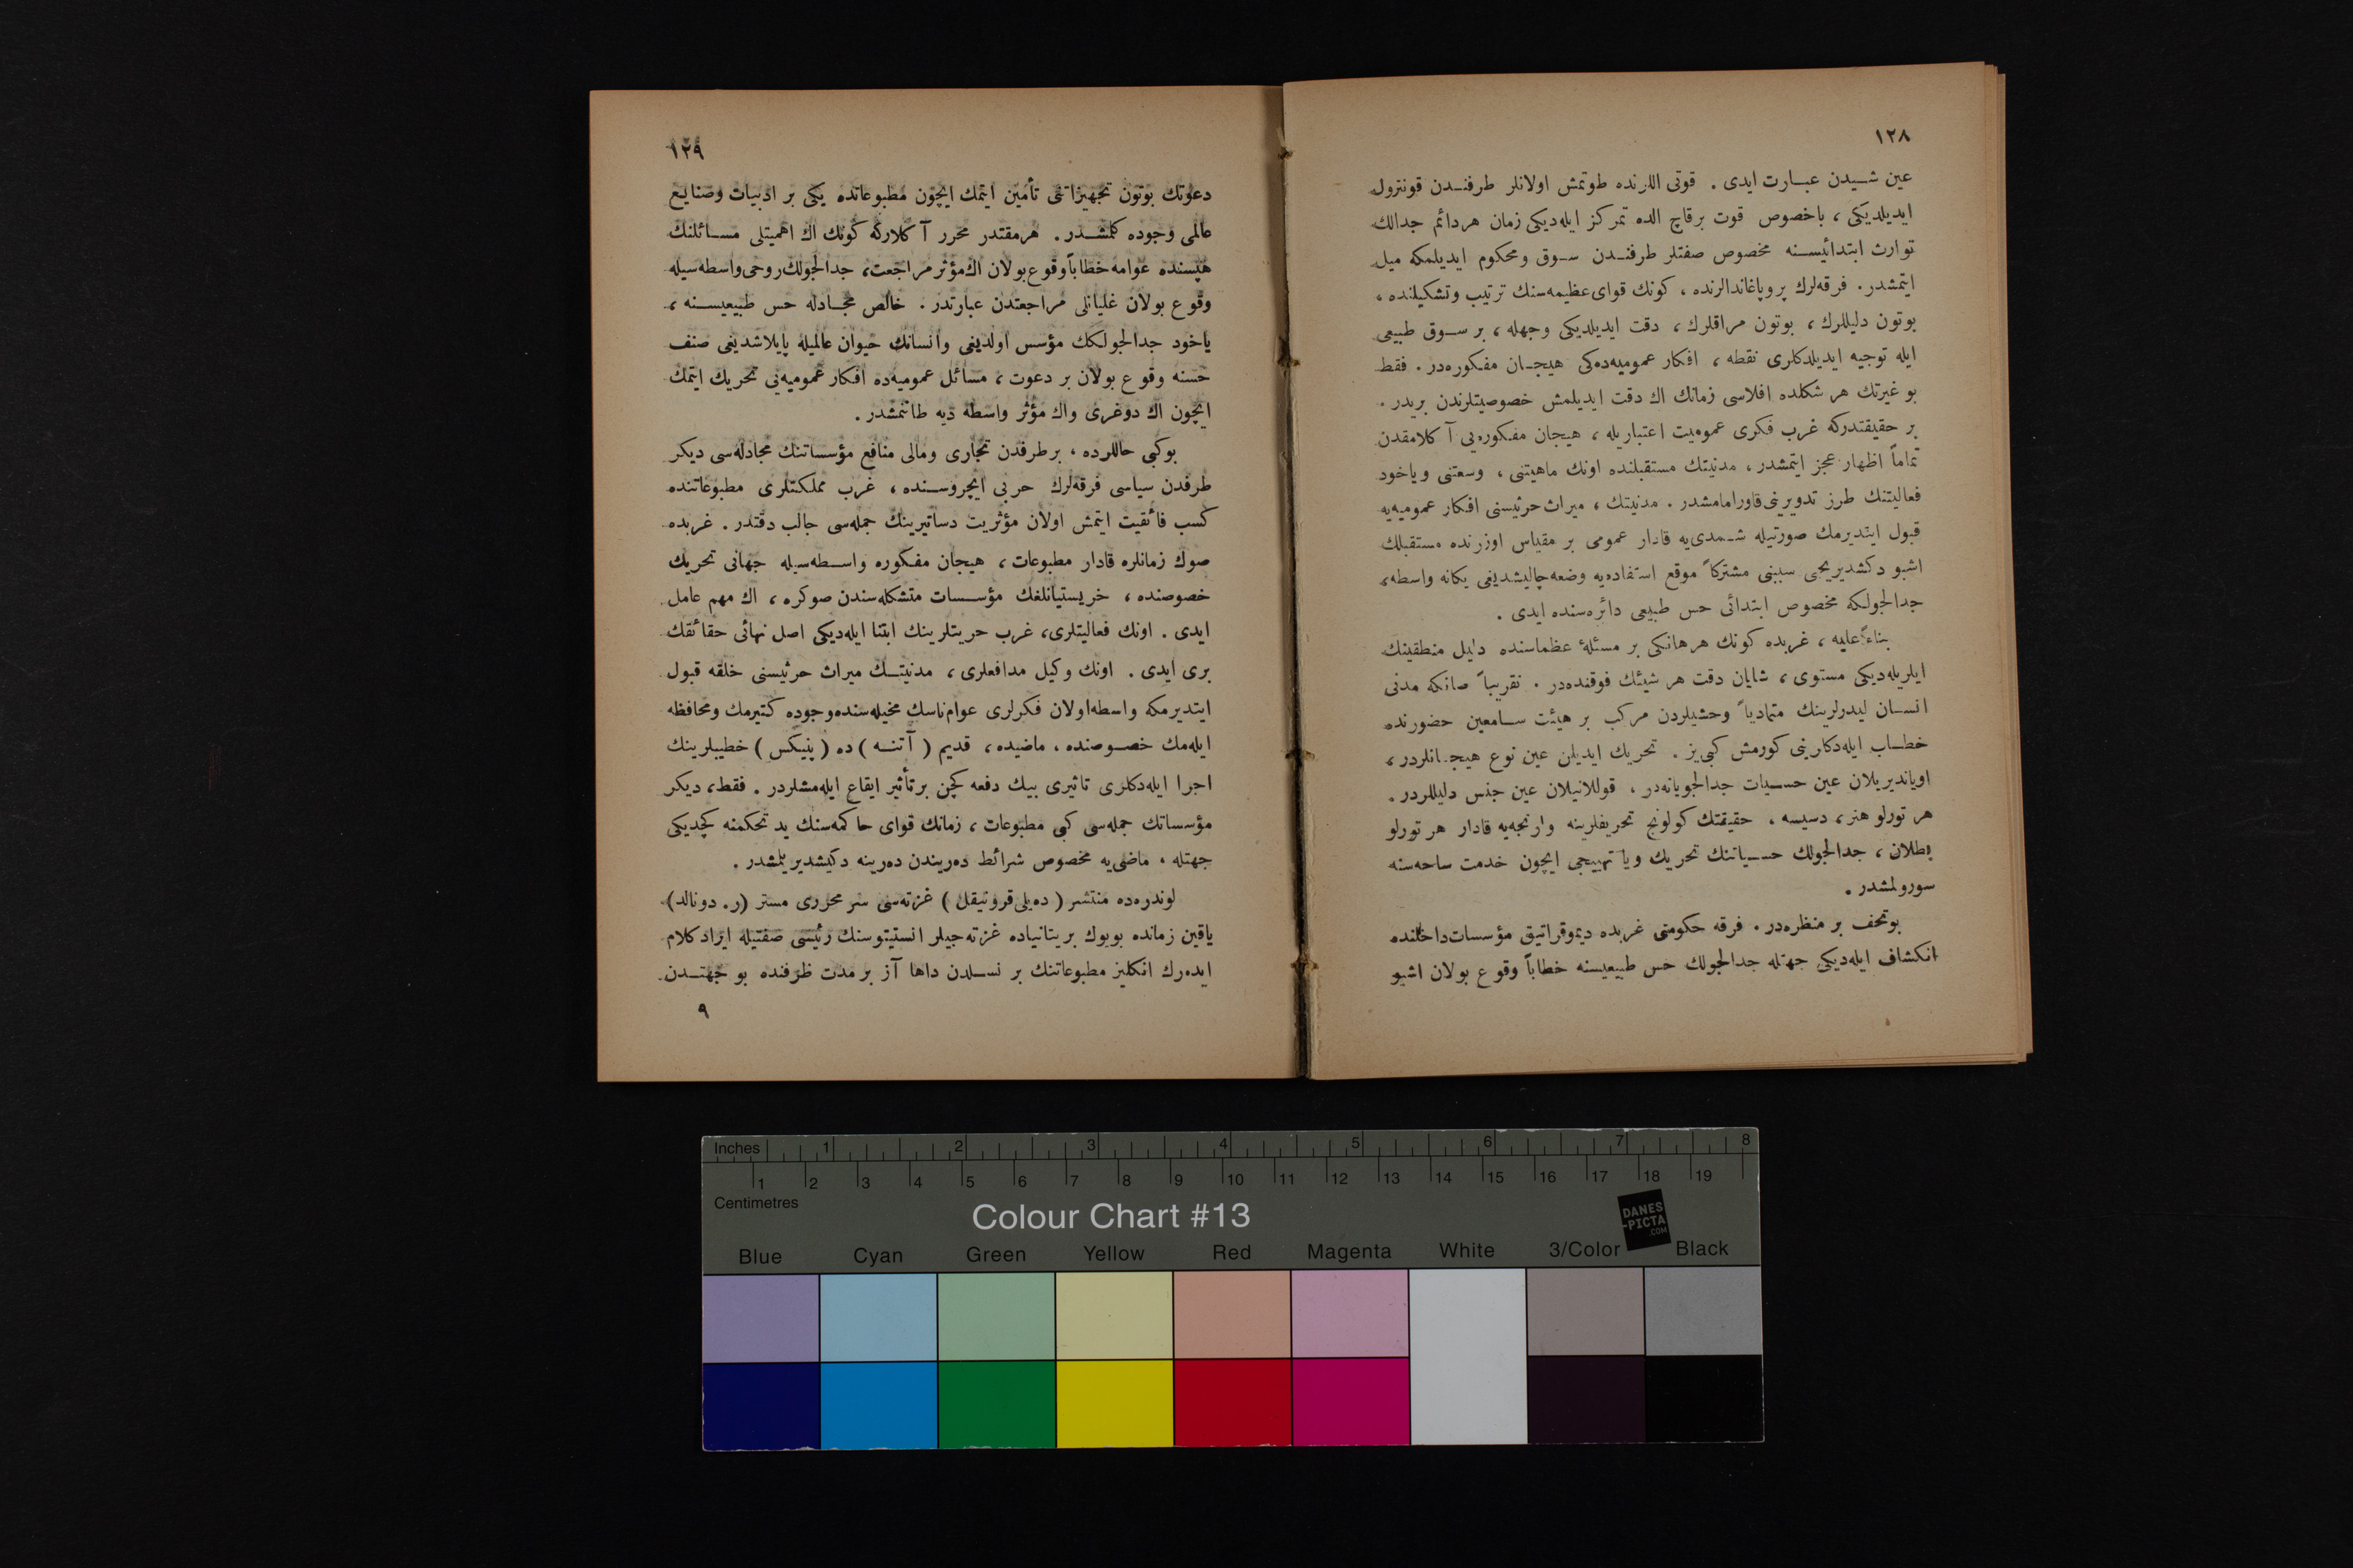 ١٢٨
عين شیدن عبارت ايدى . قوتى اللرنده طوتمش اولانلر طرفندن قونترول
ايديلديكى ، باخصوص قوت برقاچ الده تمركز ايله‌ديكى زمان هردائم جدالك
توارث ابتدائيسنه مخصوص صفتلر طرفندن سوق ومحكوم ايديلمكه ميل
ايتمشدر . فرقه‌لرك پروپاغاندالرنده ، كونك قواى عظيمه‌سنك ترتيب وتشكيلنده ،
بوتون دليللرك ، بوتون مراقلرك ، دقت ايديلديكى وجهله ، بر سوق طبيعى
ايله توجيه ايديلدكلرى نقطه ، افكار عموميه‌ده‌كى هيجان مفكوره‌در . فقط
بو غيرتك هر شكلده افلاسى زمانك اك دقت ايديلمش خصوصيتلرندن بريدر .
بر حقيقتدركه غرب فكرى عموميت اعتباريله ، هيجان مفكوره‌يى آ كلامقدن
تماماً اظهار عجز ايتمشدر ، مدنيتك مستقبلنده اونك ماهيتنى ، وسعتنى وياخود
فعاليتنك طرز تدويرينى قاورامامشدر . مدنيتك ، ميراث حرثيسنى افكار عموميه‌يه
قبول ايتديرمك صورتيله شمدى‌يه قادار عمومى بر مقياس اوزرنده مستقبلك
اشبو دكشديريجى سببنى مشتركاً موقع استفاده‌يه وضعه‌چاليشديغى يكانه واسطه ،
جدالجولكه مخصوص ابتدائى حس طبيعى دائره‌سنده ايدى .
بناءً عليه ، غربده كونك هر هانكى بر مسئلهٔ عظماسنده دليل منطقينك
ايلريله‌ديكى مستوى ، شايان دقت هر شيئك فوقنده‌در . تقريباً صانكه مدنى
انسان ليدرلرينك متمادياً وحشيلردن مركب بر هيئت سامعين حضورنده
خطاب ايله‌دكلرينى كورمش كبى‌يز . تحريك ايديلن عين نوع هيجانلردر ،
اوياندیریلان عين حسيات جدالجويانه‌در ، قوللانيلان عين جنس دليللردر .
هر تورلو هنر ، دسيسه ، حقيقتك كولونج تحريفلرينه وارنجه‌يه قادار هر تورلو
بطلان ، جدالجولك حسياتنك تحريك ويا تهييجى ايچون خدمت ساحه‌سنه
سورولمشدر .
بوتحف بر منظره‌در . فرقه حكومتى غربده ديموقراتيق مؤسسات‌داخلنده
انكشاف ايله‌ديكى جهتله جدالجولك حس طبيعيسنه خطاباً وقوع بولان اشبو
١٢٩
دعوتك بوتون تجهيزاتنى تأمين ايتمك ايچون مطبوعاتده يكى بر ادبيات وصنايع
عالمى وجوده كلمشدر . هرمقتدر محرر آ كلاركه كونك اك اهميتلى مسائلنك
هپسنده عوامه خطاباً وقوع بولان اك مؤثر مراجعت ، جدالجولك روحى واسطه‌سيله
وقوع بولان غليانلى مراجعتدن عبارتدر . خالص مجادله حس طبيعيسنه ،
ياخود جدالجولكك مؤسس اولديغى وانسانك حيوان عالميله پايلاشديغى صنف
حسنه وقوع بولان بر دعوت ، مسائل عموميه‌ده افكار عموميه‌يى تحريك ايتمك
ايچون اك دوغرى واك مؤثر واسطه ديه طانمشدر .
بوكبى حاللرده ، برطرفدن تجارى ومالى منافع مؤسساتنك مجادله‌سى ديكر
طرفدن سياسى فرقه‌لرك حربى ايچروسنده ، غرب مملكتلرى مطبوعاتنده
كسب فائقيت ايتمش اولان مؤثريت دساتيرينك جمله‌سى جالب دقتدر . غربده
صوك زمانلره قادار مطبوعات ، هيجان مفكوره واسطه‌سيله جهانى تحريك
خصوصنده ، خريستيانلغك مؤسسات متشكله‌سندن صوكره ، اك مهم عامل
ايدى . اونك فعاليتلرى ، غرب حريتلرينك ابتنا ايله‌ديكى اصل نهائى حقائقك
برى ايدى . اونك وكيل مدافعلرى ، مدنيتك ميراث حرثيسنى خلقه قبول
ايتديرمكه واسطه‌اولان فكرلرى عوام‌ناسك مخيله‌سنده‌وجوده كتيرمك ومحافظه
ايله‌مك خصوصنده ، ماضيده ، قديم ( آتنه ) ده ( پنيكس ) خطيبلرينك
اجرا ايله‌دكلرى تاثيرى بيك دفعه كچن برتأثير ايقاع ايله‌مشلردر . فقط ، ديكر
مؤسساتك جمله‌سى كبى مطبوعات ، زمانك قواى حاكمه‌سنك يد تحكمنه كچديكى
جهتله ، ماضى‌يه مخصوص شرائط ده‌ريندن ده‌رينه دكيشديريلمشدر .
لوندره‌ده منتشر ( ده‌يلى قرونيقل ) غزته‌سى سر محررى مستر ( ر . دونالد )
ياقين زمانده بويوك بريتانياده غزته‌جيلر انستيتوسنك رئيسى صفتيله ايراد كلام
ايده‌رك انكليز مطبوعاتنك بر نسلدن داها آز بر مدت ظرفنده بو جهتدن
٩
Inches 1 2 3 4 5 6 7 8
1 2 3 4 5 6 7 8 9 10 11 12 13 14 15 16 17 18 19
Centimetres
Colour Chart #13
DANES
-PICTA
.COM
Blue Cyan Green Yellow Red Magenta White 3/Color Black